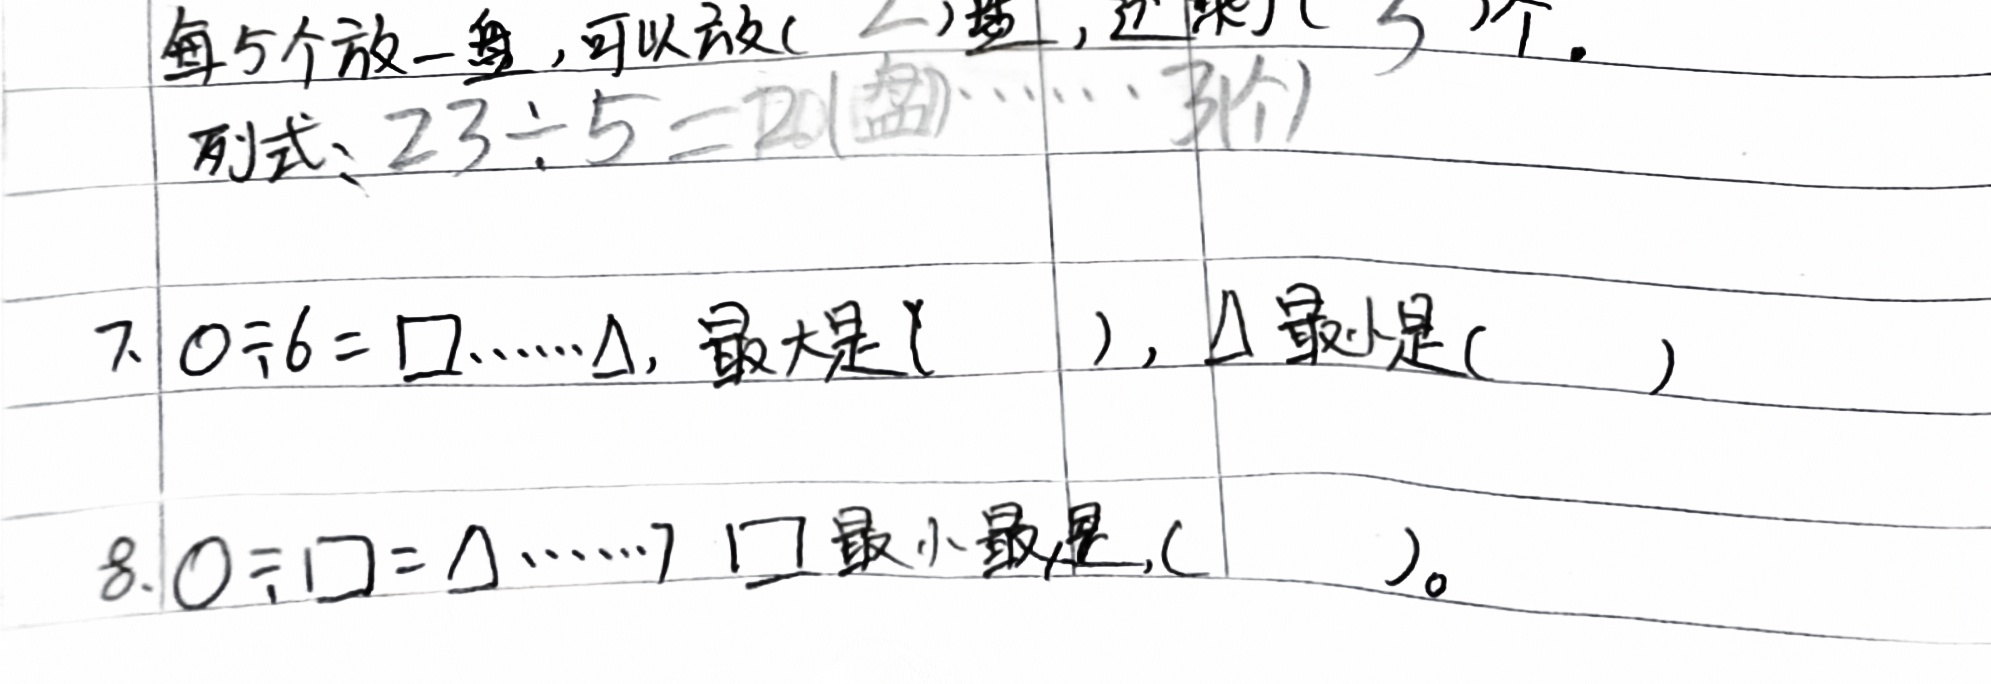 每5个放一盘,可以放( 2 )盘,还剩了( 3 )个.
列式:23÷5=2(盘)……3(个)
7. ○÷6=□……△,最大是( ),△最小是( )
8. ○÷□=△……7 □最小最是,( )。